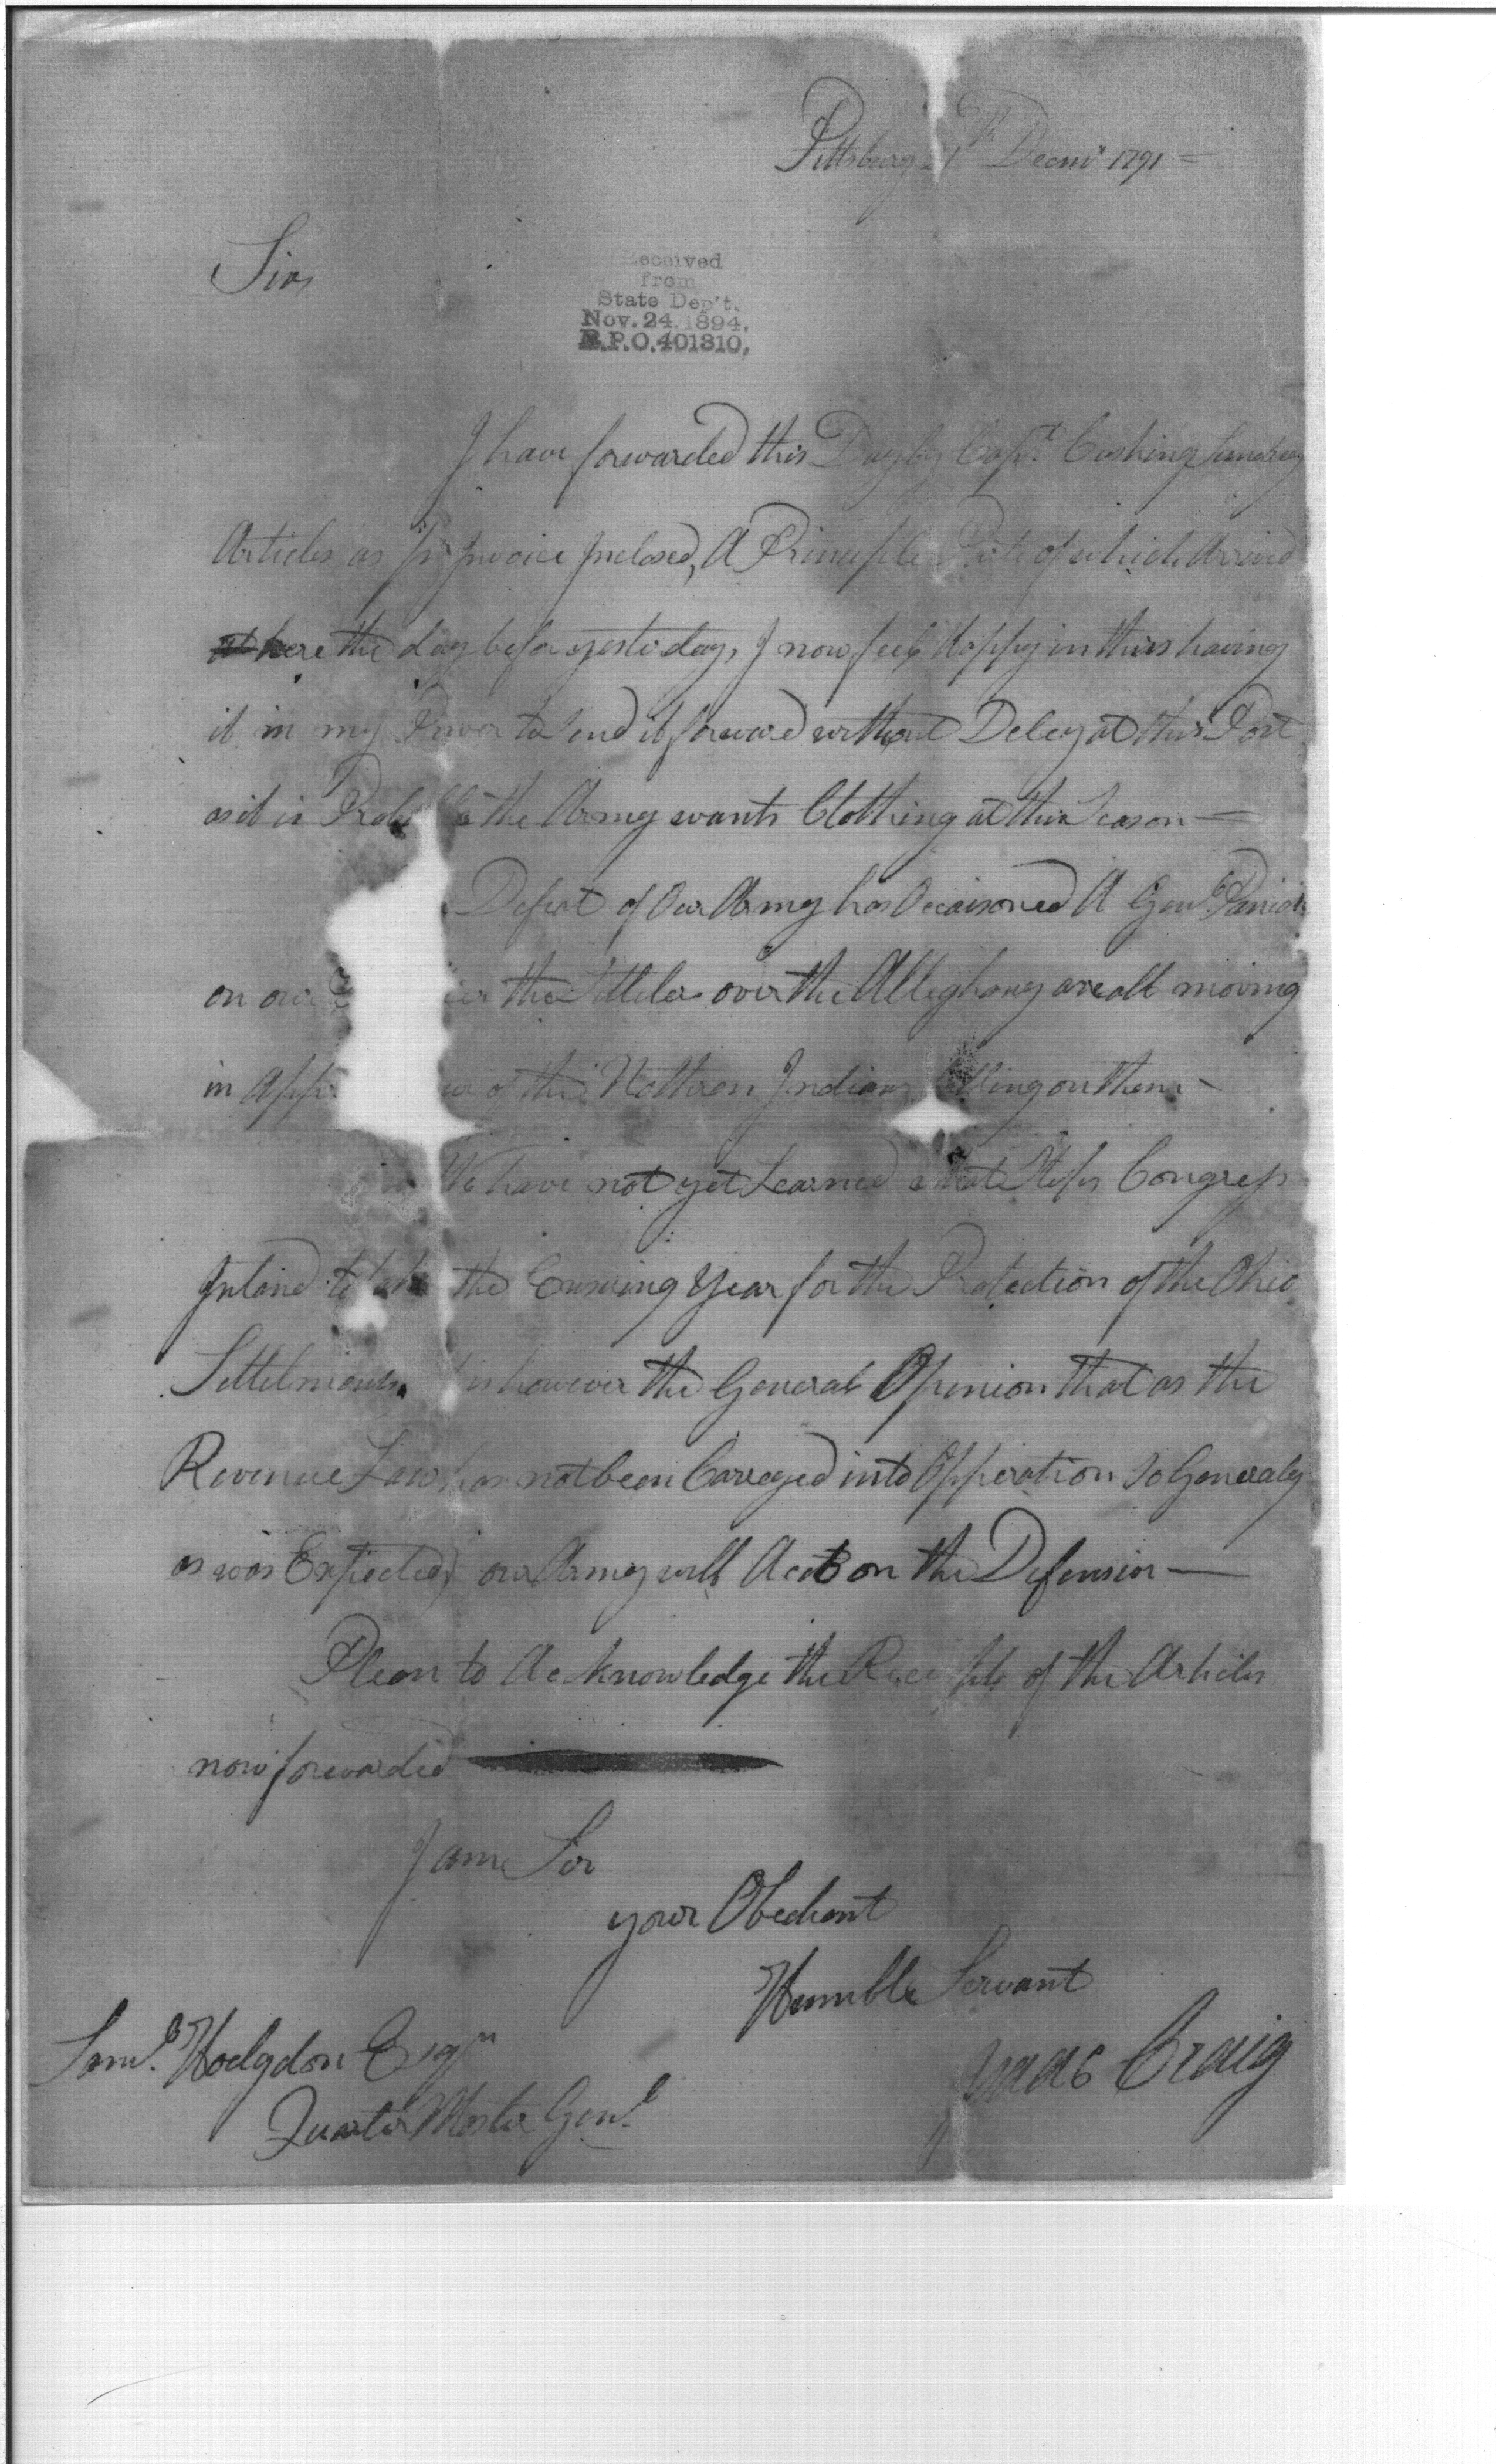 Pittsburg 1st Decmr 1791 =
Sir
eceived
from
State Dep't.
Nov. 24. 1894.
R.P.O. 401310.
I have forwarded this Day by Capt. Cushing Sundrey
Articles as pr Invoice Inclosed, A Principle Part of which Arrived
here the day befor yesterday, I now feel Happy in thus having
it in my Power to Send it forward without Delay at this Post
as it is the Army wants Clothing at this Season —
Defeat of Our Army has Occaisoned A Genl. Panick
on our the Settlers over the Alleghany are all moving
in of the Nothren Indians on them —
We have not yet Learned what Steps Congress
Intend to take the Ensuing Year for the Protection of the Ohio
Settelments is however the General Opinion that as the
Revenue Law has not been Carreyed into Opperation So Generaley
as was Expected, our Army will Act on the Defensive —
Pleas to Acknowledge the Receipte of the Articles
now forwarded
I am Sir
your Obedient
Humble Servant
Isaac Craig
Saml. Hodgdon Esqr
Quarter Master Genl.